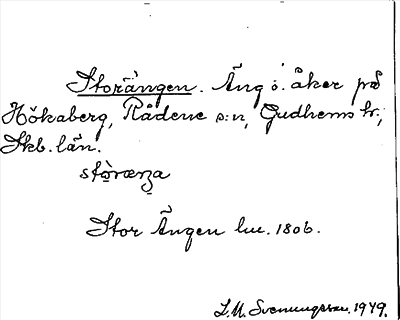 Storängen. Äng o. åker på
Hökaberg, Rådene s:n, Gudhems hr.,
Skb. län.
stòræŋa
Stor Ängen lm. 1806.
S.M. Svenungsson. 1949.